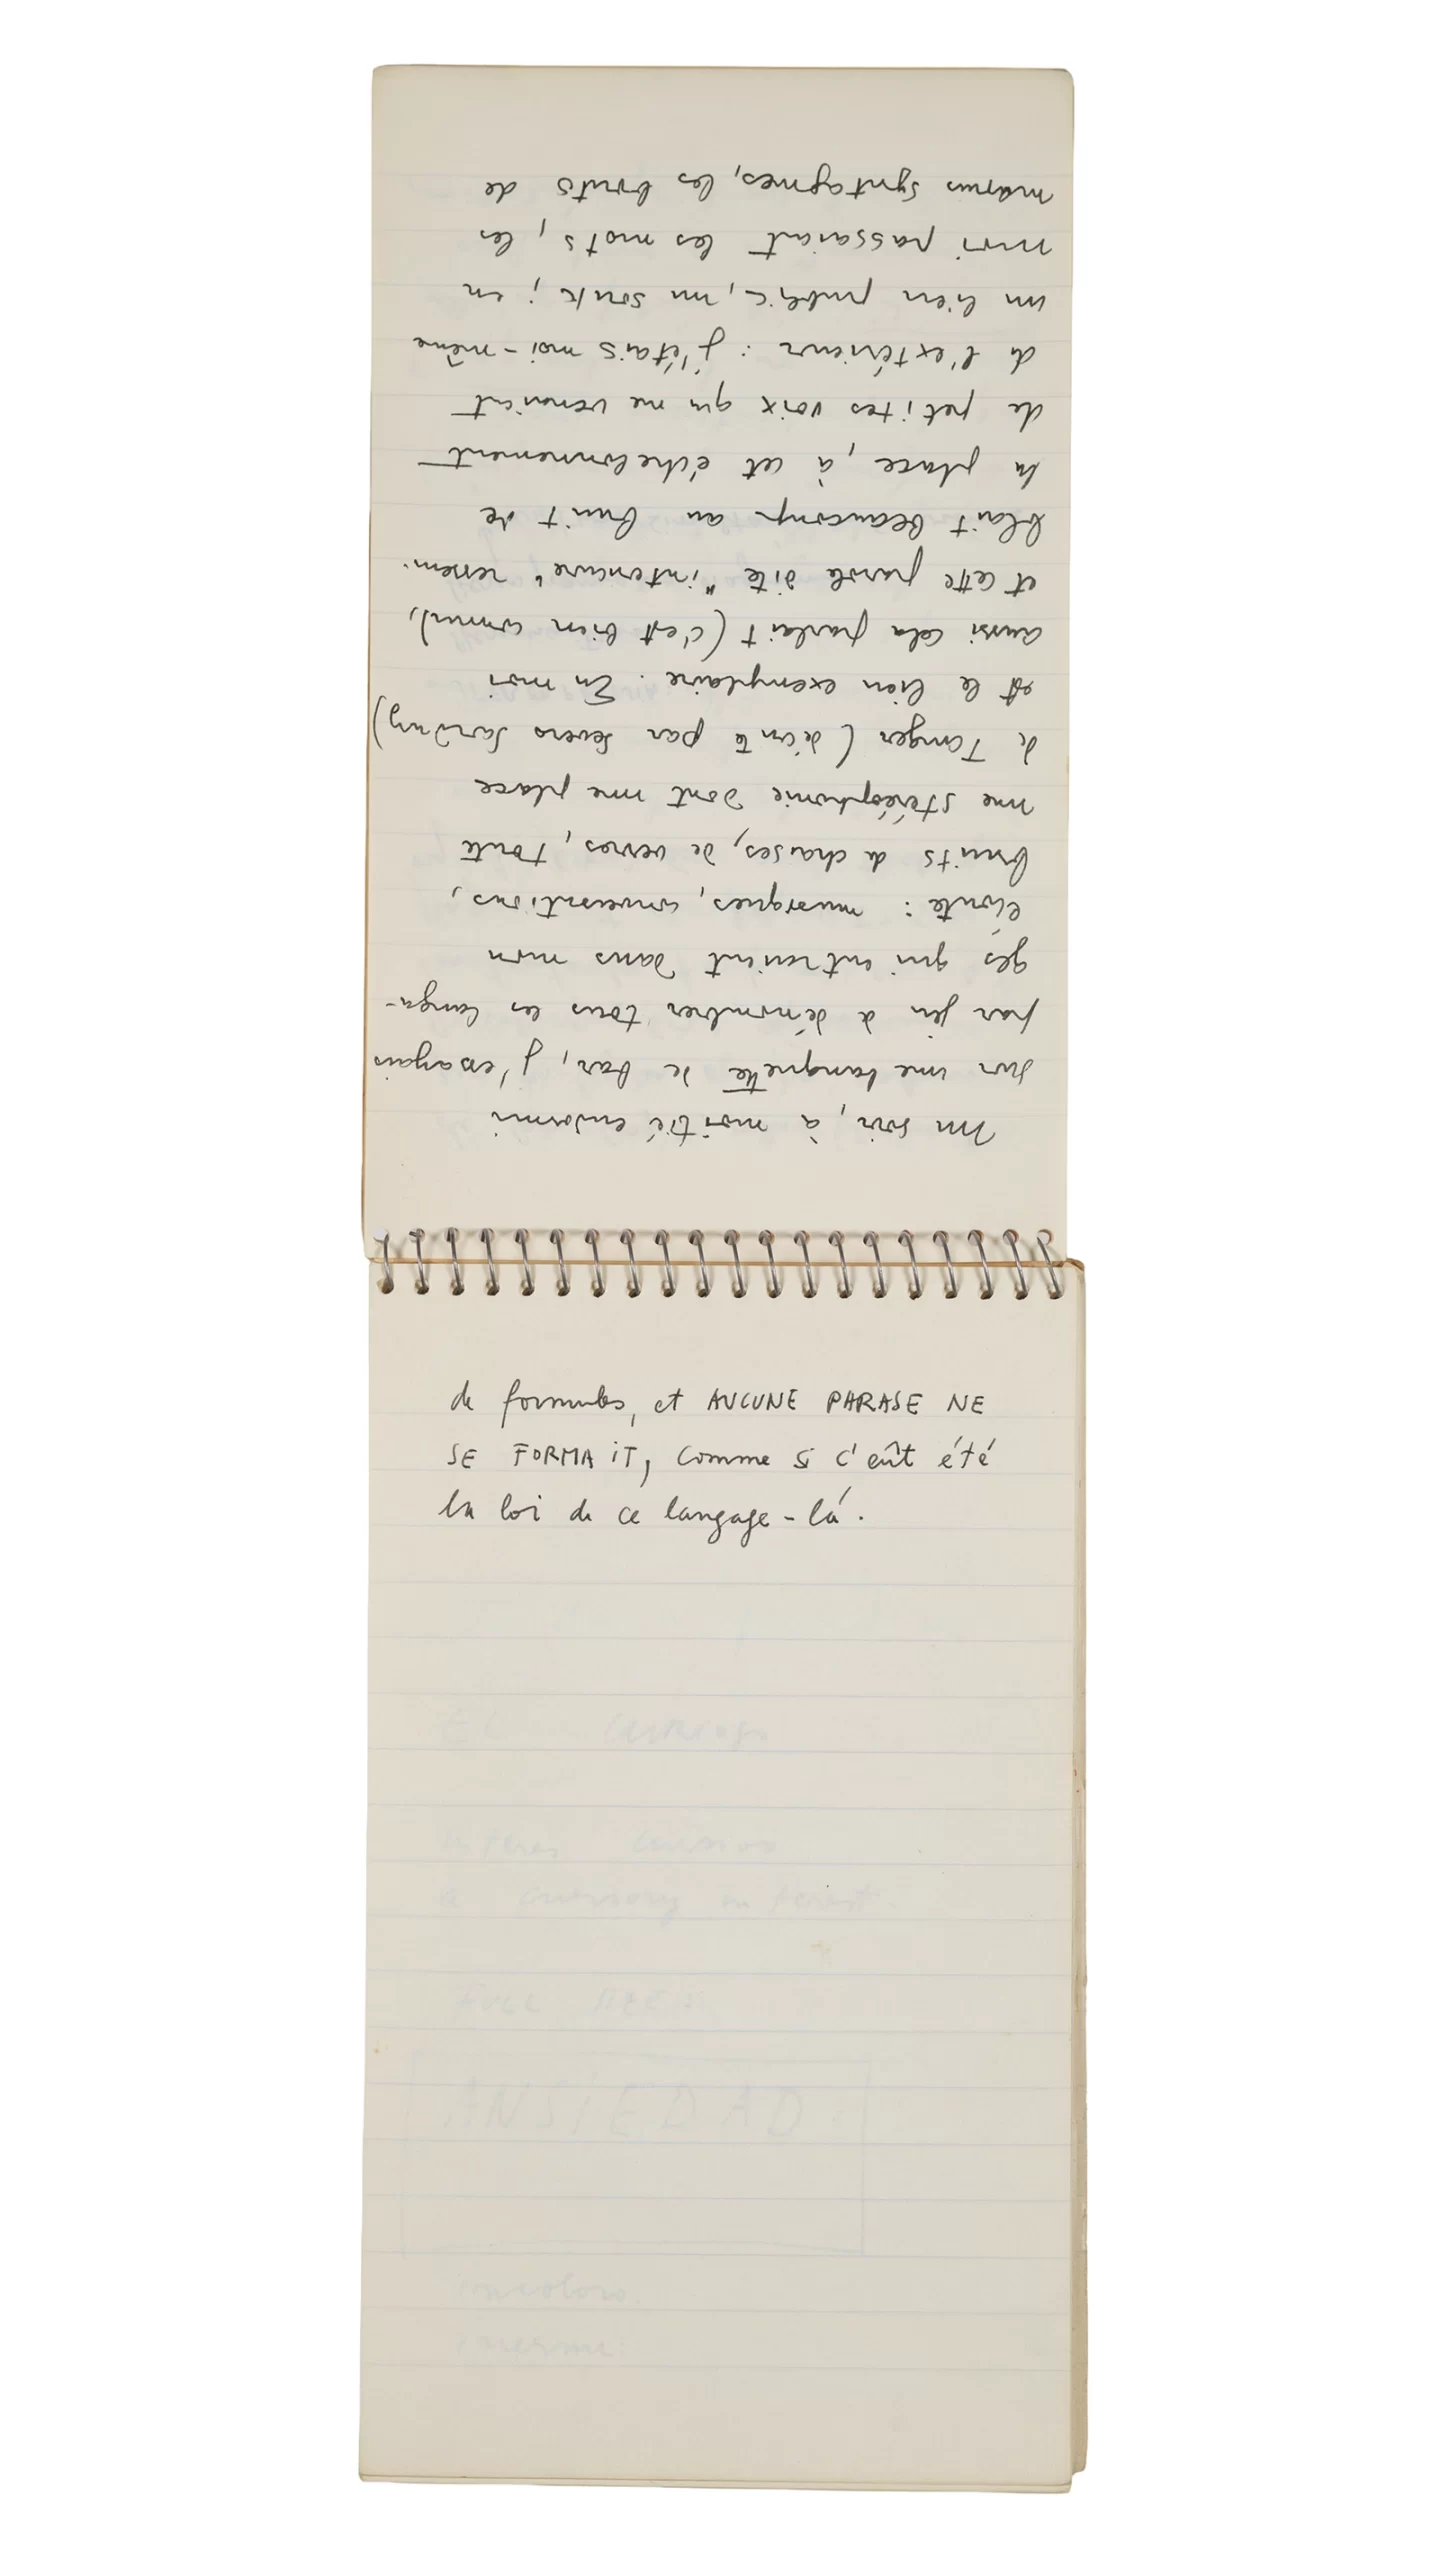 Un soir, à moitié endormi
sur une banquette de bar, j'essayais
par jeu à dénombrer tous les langa-
gés qui entraient dans mon
écoute : musiques, conversations,
bruits de chaises, de verres, toute
une stéréophonie dont une place
de Tanger (décrite par Severo Sarduy)
est le lieu exemplaire. En moi
aussi cela parlait (c'est bien connu),
et cette parole dite "intérieure" ressem-
blait beaucoup au bruit de
la place, à cet échelonnement
de petites voix qui me venaient
de l'extérieur : j'étais moi-même
un lieu public, un souk ; en
moi passaient les mots, les
menus syntagmes, les bouts de
de formules, et AUCUNE PHRASE NE
SE FORMAIT, comme si c'eût été
la loi de ce langage-là.
ANSIEDAD